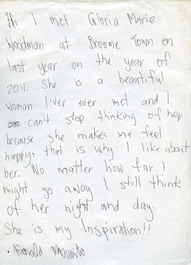 Hi I met Gloria Marie
Woodman at Broome Town on
last year on the year of
2011. She is a beautiful
woman I'ver over met and I
can't stop thinking of her
because she makes me feel
happy. that is why I like about
her. No matter how far I
might go away I still think
of her night and day.
She is my Inspiration!!